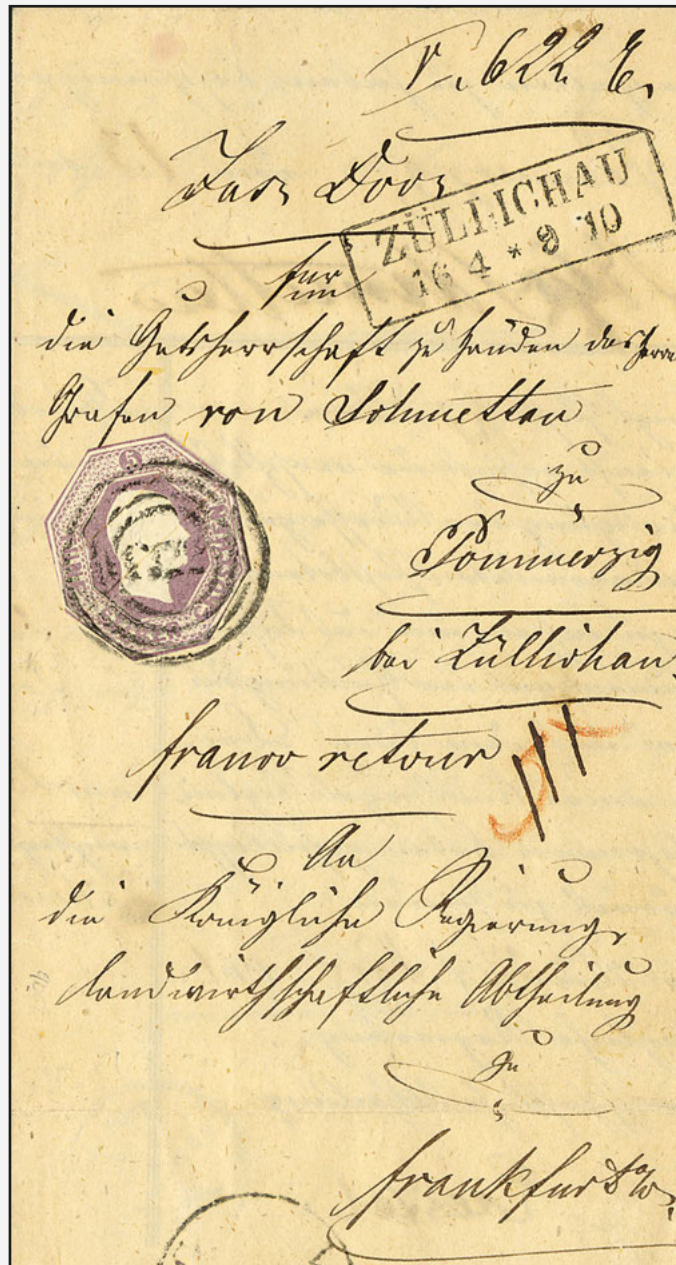 V. 622 E.
ZÜLLICHAU
16 4 * 8 10
für
die Gutsherrschaft zu Händen des Herrn
Grafen von Schmettau
zu
Pommerzig
bei Züllichau.
5
franco retour
An
die Königliche Regierung,
landwirthschaftliche Abtheilung
zu
Frankfurt a/O.